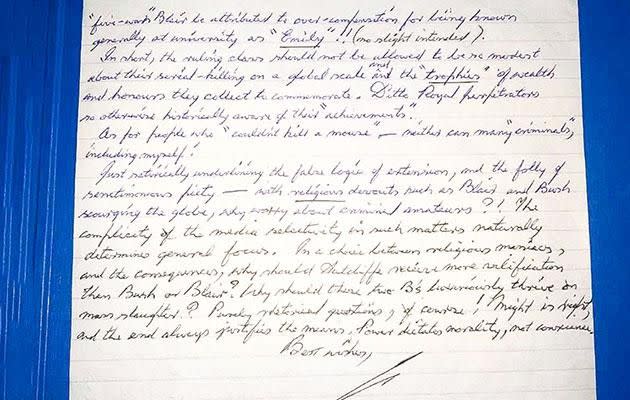 "five-wars" Blair be attributed to over-compensation for being known
generally at university as "Emily"!! (no slight intended).
In short, the ruling class should not be allowed to be so modest
about their serial-killing on a global scale and the "trophies" of wealth
and honours they collect to commemorate. Ditto Royal perpetrators
so otherwise historically aware of their "achievements".
As for people who "couldn't kill a mouse" — neither can many "criminals",
including myself!
Just satirically underlining the false logic of extension, and the folly of
sanctimonious piety — with religious devouts such as Blair and Bush
scourging the globe, why worry about criminal amateurs?! The
complicity of the media selectivity in such matters naturally
determines general focus. In a choice between religious maniacs,
and the consequences, why should Sutcliffe receive more vilification
than Bush or Blair? Why should these two Bs luxuriously thrive on
mass slaughter? Purely rhetorical questions, of course! Might is right,
and the end always justifies the means. Power dictates morality, not conscience.
Best wishes,